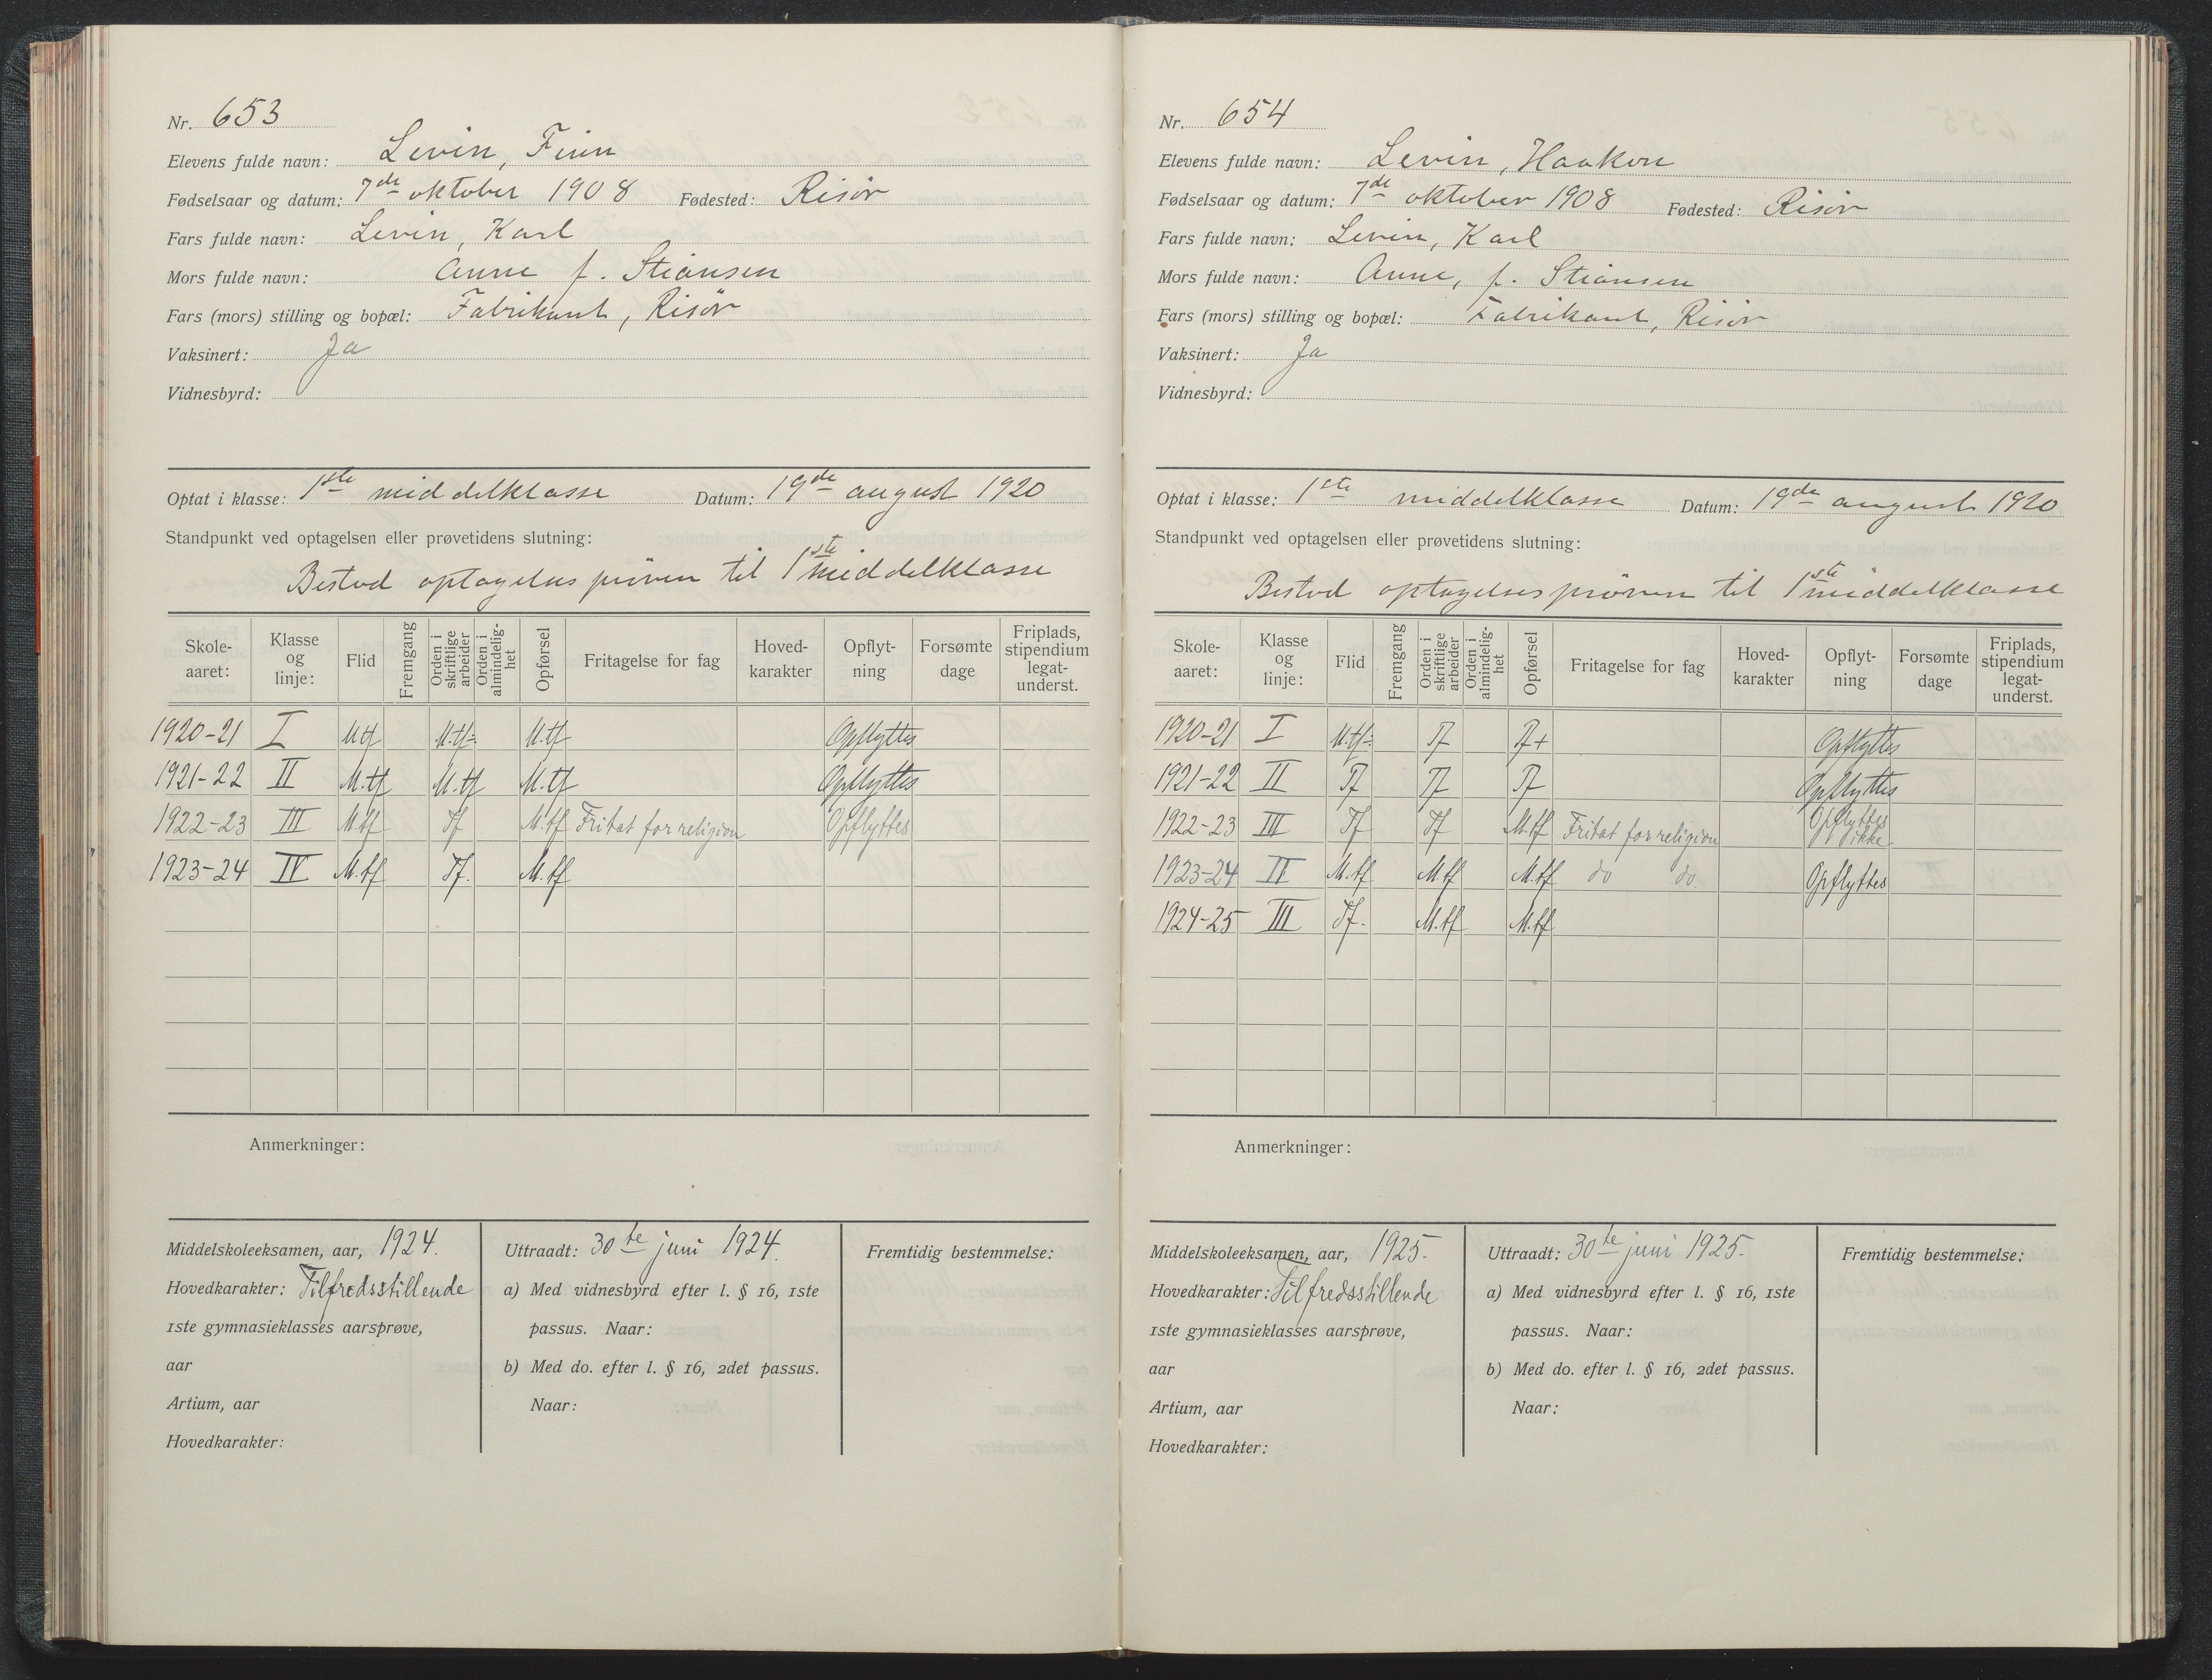 Nr. 653
Elevens fulde navn: Levin, Finn
Fødselsaar og datum: 7de oktober 1908 Fødested: Risör
Fars fulde navn: Levin, Karl
Mors fulde navn: Anne f. Stiansen
Fars (mors) stilling og bopæl: Fabrikant, Risör
Vaksinert: Ja
Vidnesbyrd:
Optat i klasse: 1ste middelklasse Datum: 19de august 1920
Standpunkt ved optagelsen eller prøvetidens slutning:
Bestod optagelsespröven til 1ste middelklasse
Skole-aaret: Klasse og linje: Flid Fremgang Orden i skriftlige arbeider Orden i almindelig-het Opførsel Fritagelse for fag Hoved-karakter Opflyt-ning Forsømte dage Friplads, stipendium legat-underst.
1920-21 I M.tf M.tf÷ M.tf Opflyttes
1921-22 II M.tf M.tf M.tf Opflyttes
1922-23 III M.tf Tf M.tf Fritat for religion Opflyttes
1923-24 IV M.tf Tf. M.tf
Anmerkninger:
Middelskoleeksamen, aar, 1924.
Hovedkarakter: Tilfredsstillende
1ste gymnasieklasses aarsprøve,
aar
Artium, aar
Hovedkarakter:
Uttraadt: 30te juni 1924.
a) Med vidnesbyrd efter l. § 16, 1ste
passus. Naar:
b) Med do. efter l. § 16, 2det passus.
Naar:
Fremtidig bestemmelse:
Nr. 654
Elevens fulde navn: Levin, Haakon
Fødselsaar og datum: 7de oktober 1908 Fødested: Risör
Fars fulde navn: Levin, Karl
Mors fulde navn: Anne, f. Stiansen
Fars (mors) stilling og bopæl: Fabrikant, Risör
Vaksinert: Ja
Vidnesbyrd:
Optat i klasse: 1ste middelklasse Datum: 19de august 1920
Standpunkt ved optagelsen eller prøvetidens slutning:
Bestod optagelsespröven til 1ste middelklasse
Skole-aaret: Klasse og linje: Flid Fremgang Orden i skriftlige arbeider Orden i almindelig-het Opførsel Fritagelse for fag Hoved-karakter Opflyt-ning Forsømte dage Friplads, stipendium legat-underst.
1920-21 I M.tf÷ Tf Tf+ Opflyttes
1921-22 II Tf Tf Tf Opflyttes
1922-23 III Tf Tf M.tf Fritat for religion Opflyttes ikke
1923-24 II M.tf M.tf M.tf do do. Opflyttes
1924-25 III Tf. M.tf M.tf
Anmerkninger:
Middelskoleeksamen, aar, 1925.
Hovedkarakter: Tilfredsstillende
1ste gymnasieklasses aarsprøve,
aar
Artium, aar
Hovedkarakter:
Uttraadt: 30te juni 1925.
a) Med vidnesbyrd efter l. § 16, 1ste
passus. Naar:
b) Med do. efter l. § 16, 2det passus.
Naar:
Fremtidig bestemmelse: